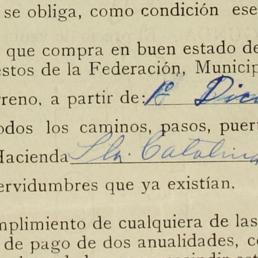 se obliga, como condición ese
que compra en buen estado de
estos de la Federación, Municip
rreno, a partir de: 1º Dic
odos los caminos, pasos, puert
Hacienda Sta. Catalina
ervidumbres que ya existían.
mplimiento de cualquiera de las
de pago de dos anualidades, c